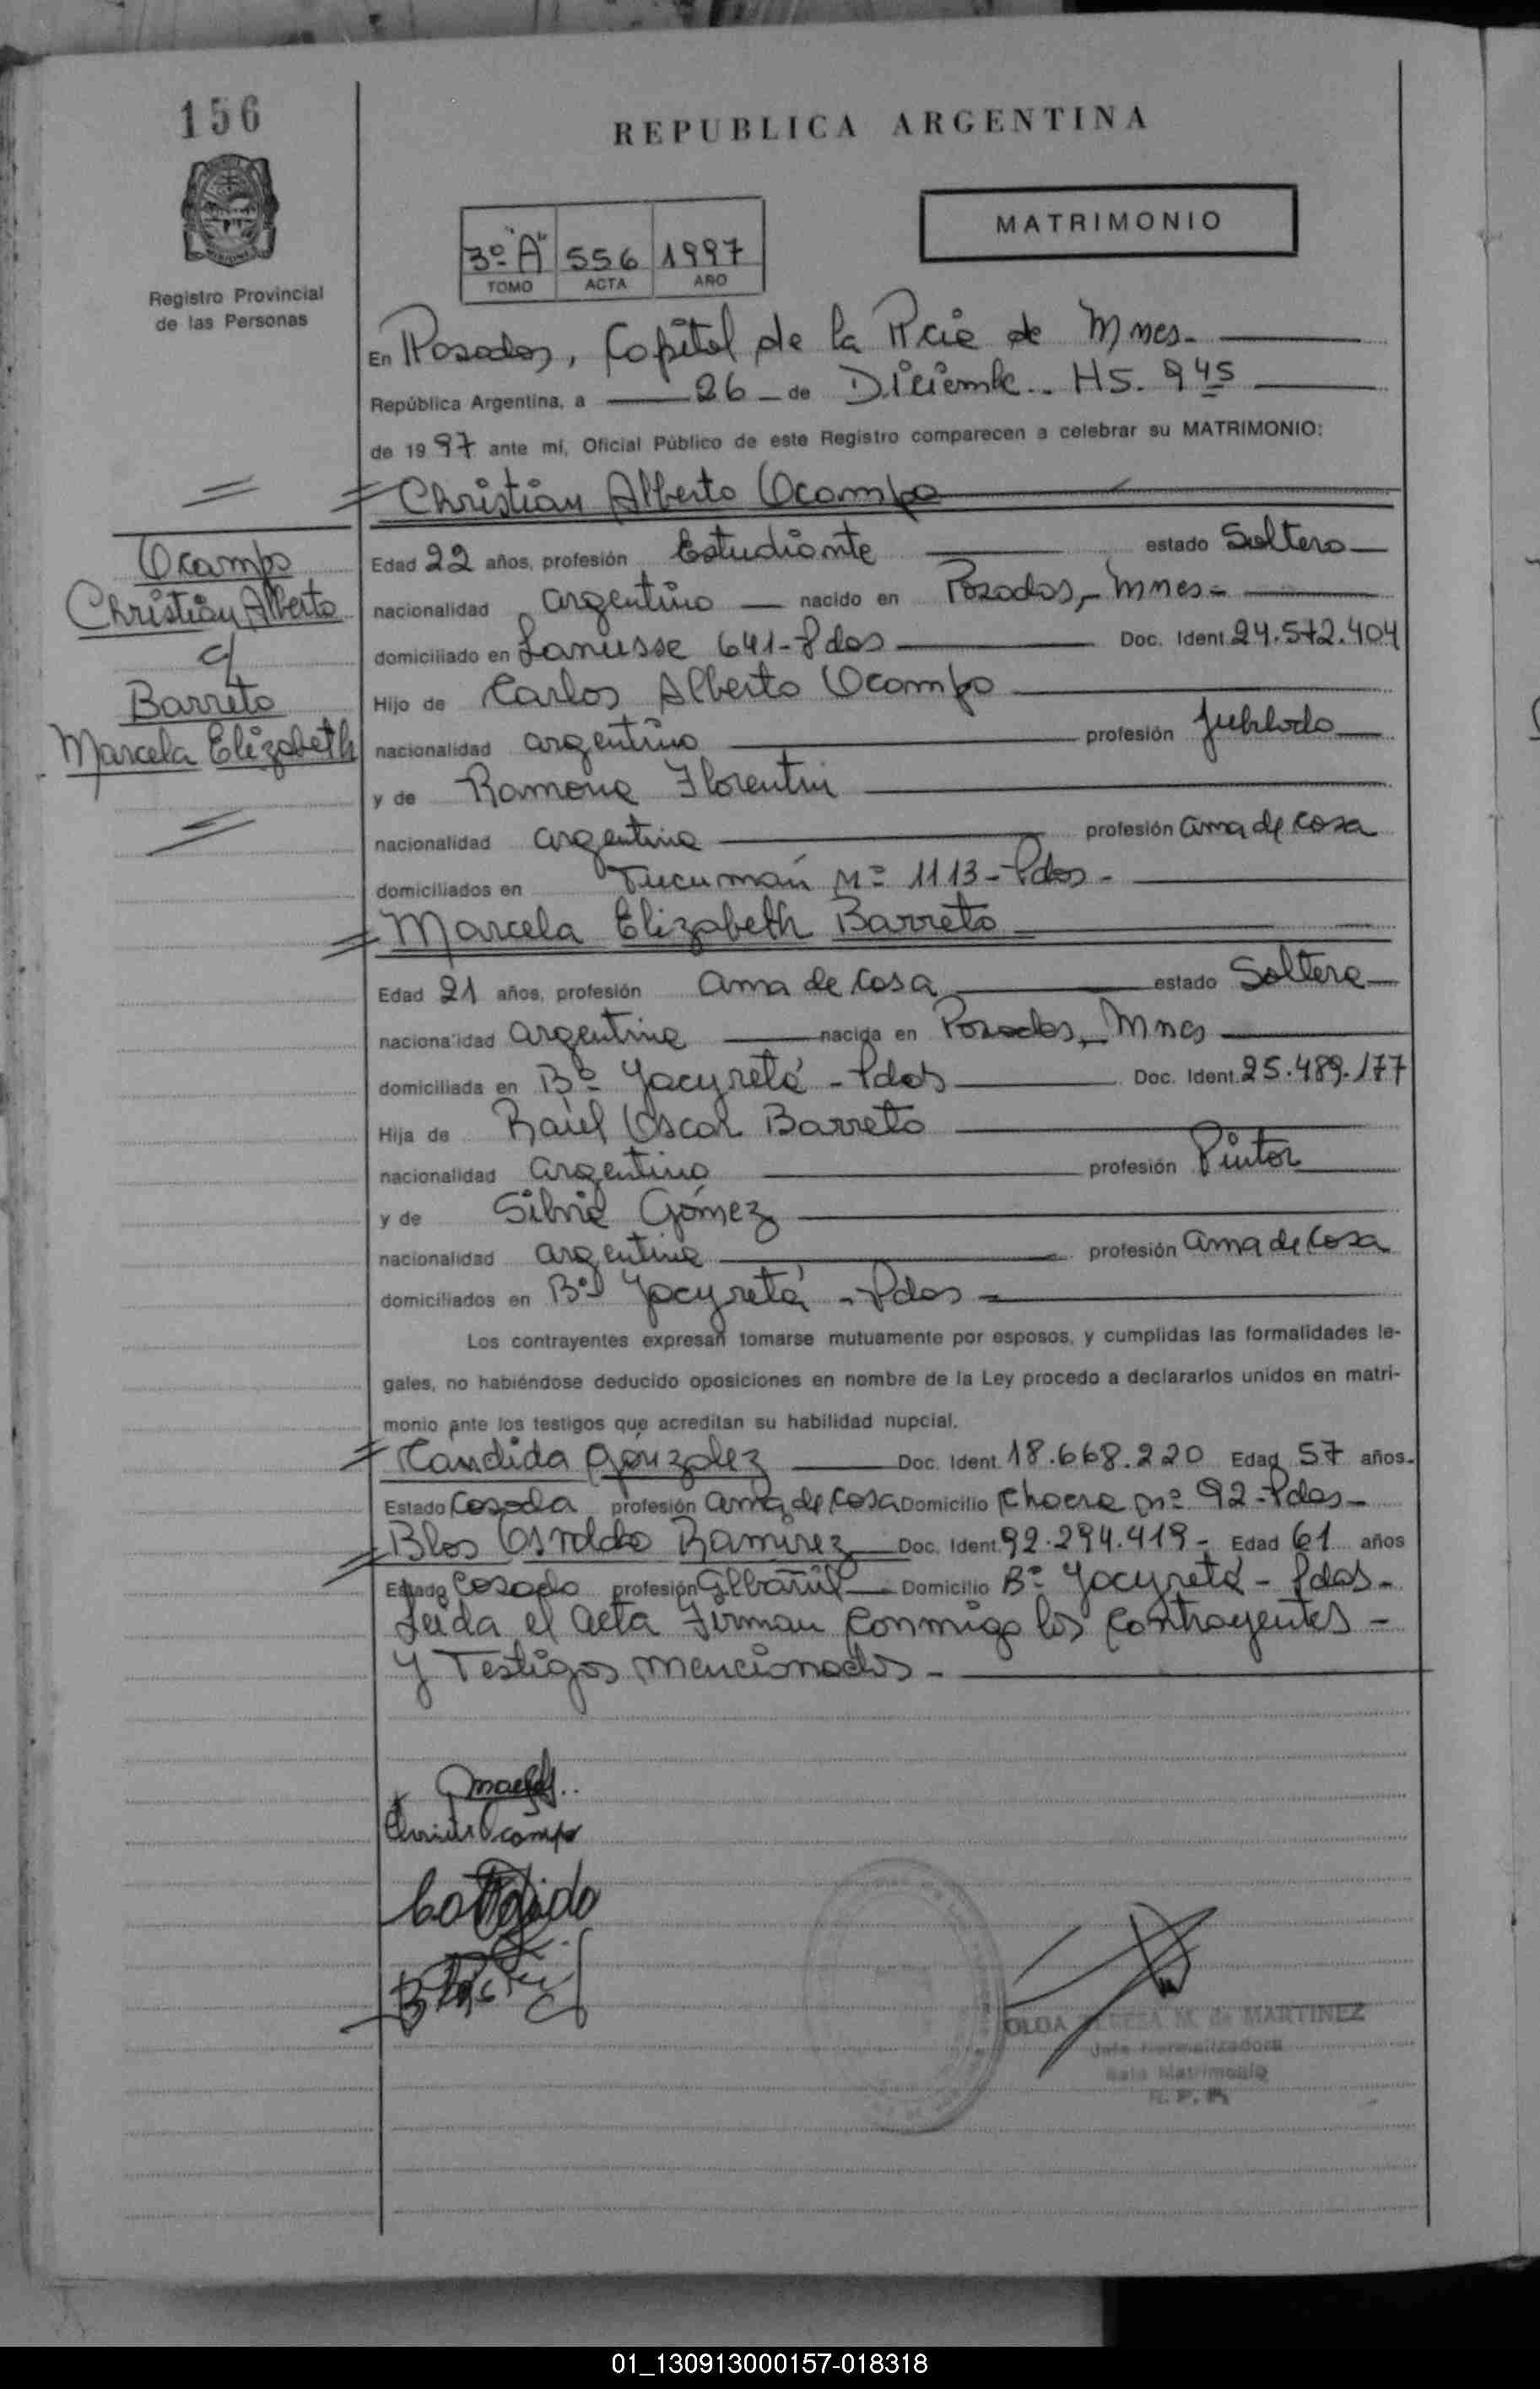 156
REPUBLICA ARGENTINA
MATRIMONIO
3º "A" 556 1997
TOMO ACTA AÑO
Registro Provincial
de las Personas
En Posadas, Capital de la Pcia de Mnes.
República Argentina, a 26 de Diciembre.. HS. 9 45
de 1997 ante mí, Oficial Público de este Registro comparecen a celebrar su MATRIMONIO:
Christian Alberto Ocampo
Ocampo
Christian Alberto
c/
Barreto
Marcela Elizabeth
Edad 22 años, profesión Estudiante estado Soltero
nacionalidad argentino nacido en Posadas, Mnes
domiciliado en Lanusse 641-Pdas Doc. Ident. 24.572.404
Hijo de Carlos Alberto Ocampo
nacionalidad argentino profesión Jubilado
y de Ramona Florentin
nacionalidad argentina profesión ama de casa
domiciliados en Tucumán Nº 1113-Pdas-
Marcela Elizabeth Barreto
Edad 21 años, profesión ama de casa estado Soltera
nacionalidad argentina nacida en Posadas, Mnes
domiciliada en Bº Yacyretá - Pdas Doc. Ident. 25.489.177
Hija de Raúl Oscar Barreto
nacionalidad argentino profesión Pintor
y de Silvia Gómez
nacionalidad argentina profesión ama de casa
domiciliados en Bº Yacyretá - Pdas
Los contrayentes expresan tomarse mutuamente por esposos, y cumplidas las formalidades le-
gales, no habiéndose deducido oposiciones en nombre de la Ley procedo a declararlos unidos en matri-
monio ante los testigos que acreditan su habilidad nupcial.
Candida González Doc. Ident. 18.668.220 Edad 57 años.
Estado Casada profesión ama de casa Domicilio Chacra nº 92-Pdas-
Blas Osvaldo Ramirez Doc. Ident. 92.294.419- Edad 61 años
Estado Casado profesión albañil Domicilio Bº Yacyretá - Pdas-
Leida el acta Firman conmigo los contrayentes -
y Testigos mencionados -
Ocampo
OLGA M. de MARTINEZ
Jefa Normalizadora
Sala Matrimonio
R. P. P.
01_130913000157-018318